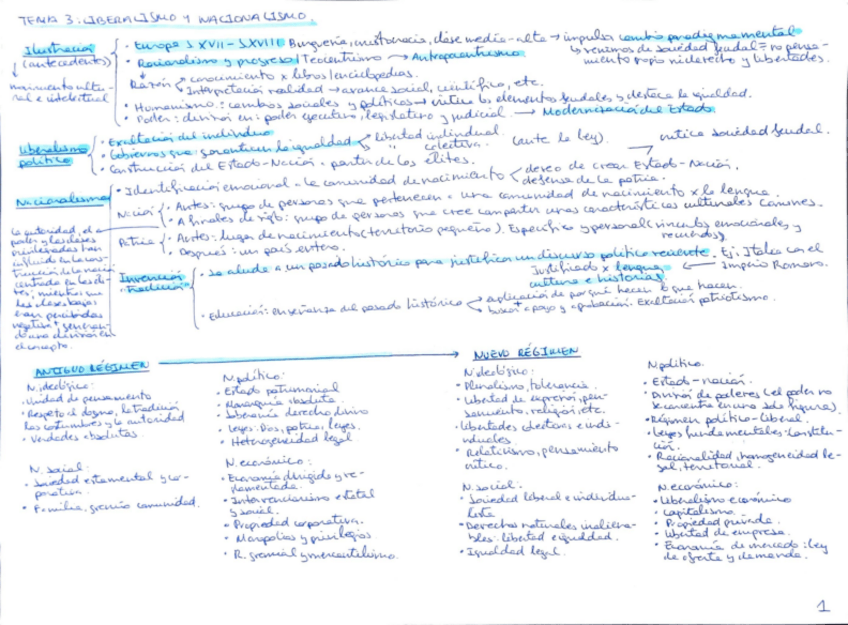 TEMA 3: LIBERALISMO Y NACIONALISMO.
Ilustración (antecedentes)
↓
movimiento cultural e intelectual
• Europa S XVII - S XVIII Burguesía, aristocracia, clase media-alta → impulsa cambio paradigma mental
↳ venimos de sociedad feudal = no pensamiento propio ni derecho y libertades.
• Racionalismo y progreso / Teocentrismo → Antropocentrismo
Razón
conocimiento x libros/enciclopedias.
Interpretación realidad → avance social, científico, etc.
• Humanismo: cambios sociales y políticos → critica los elementos feudales y destaca la igualdad.
• Poder: división en: poder ejecutivo, legislativo y judicial. → Modernización del Estado
Liberalismo político
• Exaltación del individuo
• Gobiernos que garanticen la igualdad
libertad individual.
" colectiva.
(ante la ley).
critica sociedad feudal.
• Construcción del Estado-Nación a partir de las élites.
Nacionalismo
• Identificación emocional a la comunidad de nacimiento
deseo de crear Estado-Nación.
defensa de la patria.
Nación
• Antes: grupo de personas que pertenecen a una comunidad de nacimiento x la lengua.
• A finales de siglo: grupo de personas que cree compartir unas características culturales comunes.
Patria
• Antes: lugar de nacimiento (territorio pequeño). Específico y personal (vínculos emocionales y recuerdos).
• Después: un país entero.
La autoridad, el poder y las clases
han influido en la
de la nación
centrada en las élites; mientras que las clases bajas
eran percibidas
el concepto.
Invención "tradición"
• Se alude a un pasado histórico para justificar un discurso político reciente. Ej: Italia con el Imperio Romano.
Justificado x lengua, cultura e historia
• Educación: enseñanza del pasado histórico
explicación de por qué hacen lo que hacen.
buscan apoyo y aprobación. Exaltación patriotismo.
ANTIGUO RÉGIMEN → NUEVO RÉGIMEN
N. ideológico:
• Unidad de pensamiento
• Respeto al dogma, la tradición, las costumbres y la autoridad
• Verdades absolutas
N. social:
• Sociedad estamental y corporativa.
• Familia, gremio comunidad.
N. político:
• Estado patrimonial
• Monarquía absoluta.
• Soberanía derecho divino
• Leyes: Dios, patria, leyes.
• Heterogeneidad legal
N. económico:
• Economía dirigida y reglamentada.
• Intervencionismo estatal y social.
• Propiedad corporativa.
• Monopolios y privilegios
• R. gremial y mercantilismo.
N. ideológico:
• Pluralismo, tolerancia.
• Libertad de expresión, pensamiento, religión, etc.
• Libertades colectivas e individuales.
• Relativismo, pensamiento crítico.
N. social:
• Sociedad liberal e individualista
• Derechos naturales inalienables: libertad e igualdad.
• Igualdad legal.
N. político.
• Estado-nación.
• División de poderes (el poder no se concentra en una sola figura).
• Régimen político-liberal.
• Leyes fundamentales: Constitución.
• Racionalidad, homogeneidad legal, territorial.
N. económico:
• Liberalismo económico
• Capitalismo.
• Propiedad privada.
• Libertad de empresa.
• Economía de mercado: ley de oferta y demanda.
1